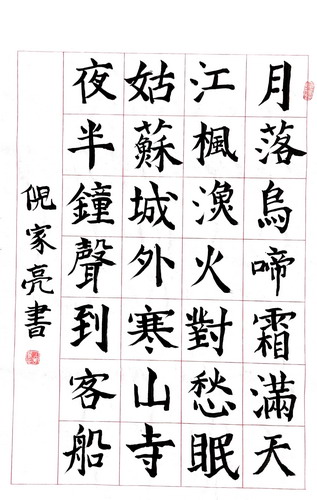 月落烏啼霜滿天
江楓漁火對愁眠
姑蘇城外寒山寺
夜半鐘聲到客船
倪家亮書